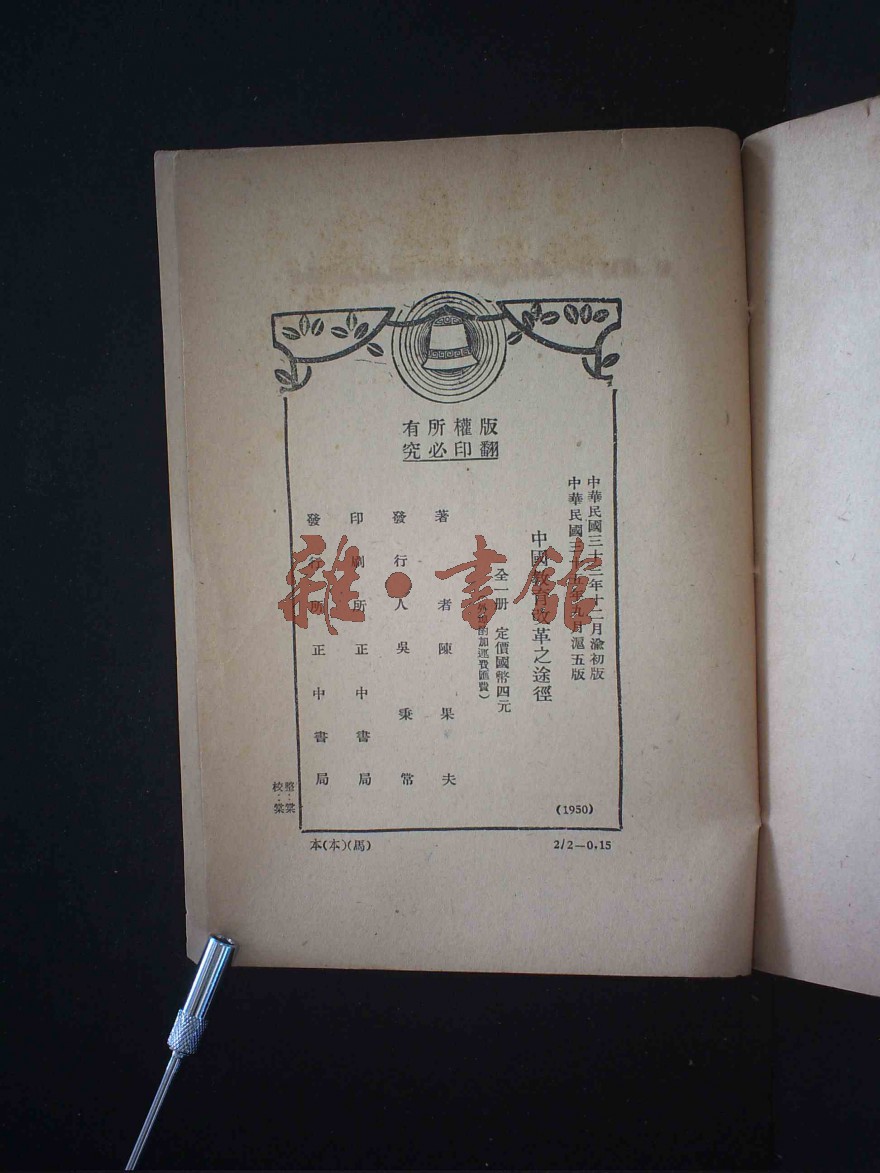 版權所有
翻印必究
中華民國三十二年十二月渝初版
中華民國三十五年九月滬五版
中國教育改革之途徑
全一册 定價國幣四元
酌加運費匯費）
著者 陳果夫
發行人 吳秉常
印刷所 正中書局
發行所 正中書局
(1950)
整：棠
校：棠
本(本)(馬)
2/2—0.15
雜·書館